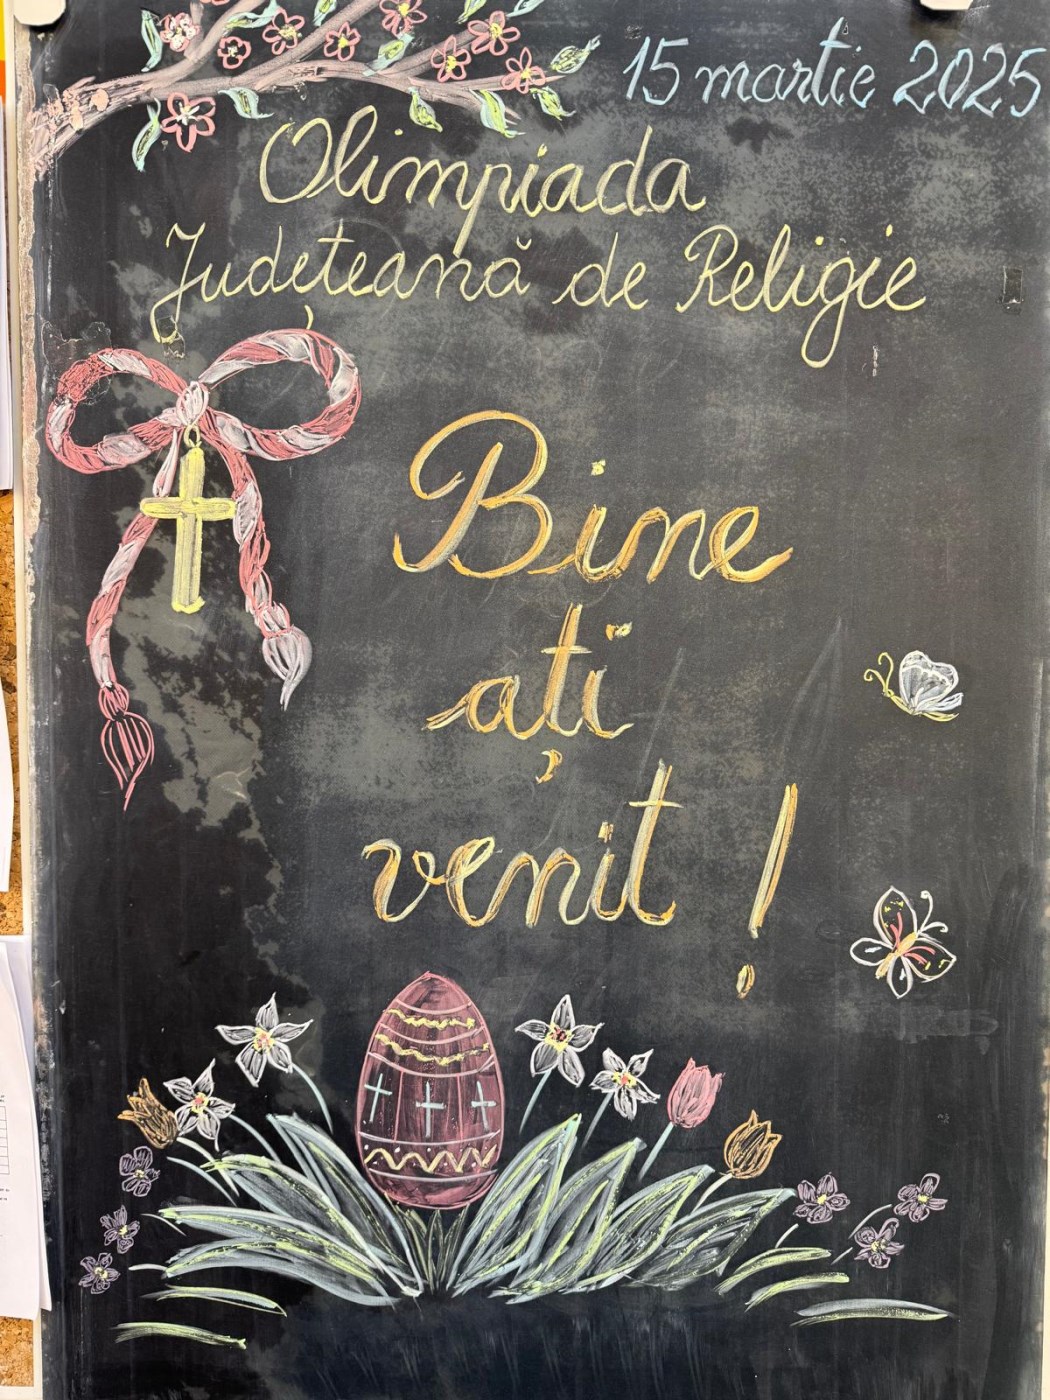 15 martie 2025
Olimpiada
Județeană de Religie
Bine
ați
venit!